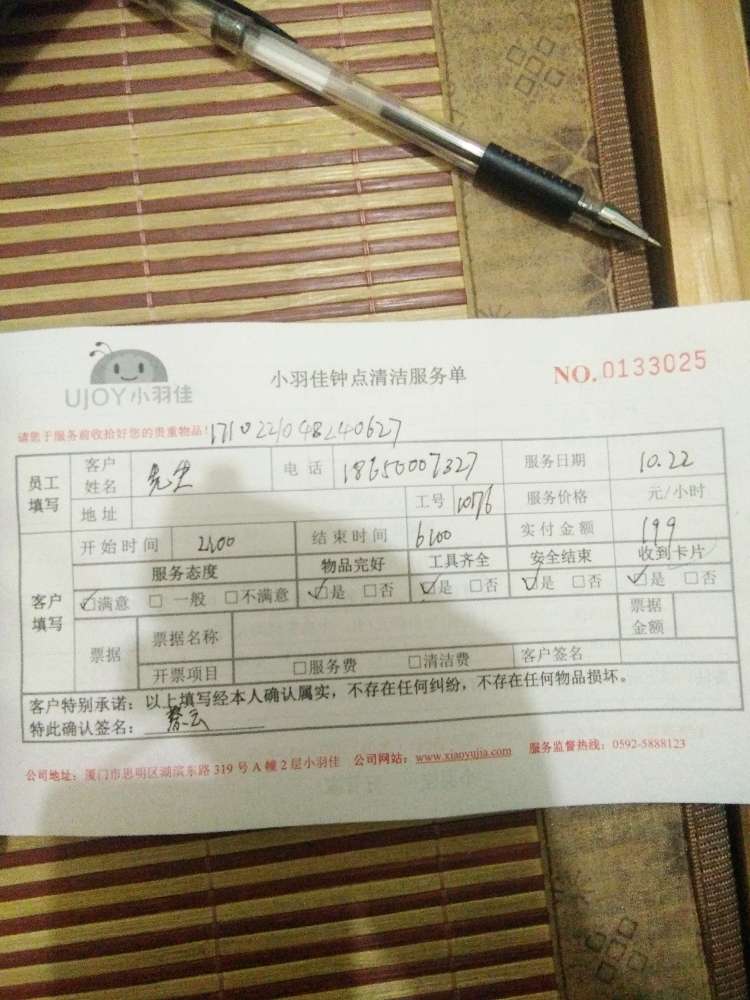 UJOY小羽佳
小羽佳钟点清洁服务单
NO.0133025
请您于服务前收拾好您的贵重物品!
171022104824062​7
员工填写 客户姓名 先生 电话 18650007327 服务日期 10.22
地址 工号 1076 服务价格 元/小时
客户填写 开始时间 2:00 结束时间 6:00 实付金额 199
服务态度 物品完好 工具齐全 安全结束 收到卡片
☑满意 □一般 □不满意 ☑是 □否 ☑是 □否 ☑是 □否 ☑是 □否
票据 票据名称 票据金额
开票项目 □服务费 □清洁费 客户签名
客户特别承诺:以上填写经本人确认属实,不存在任何纠纷,不存在任何物品损坏。
特此确认签名:
公司地址:厦门市思明区湖滨东路319号A幢2层小羽佳 公司网站:www.xiaoyujia.com 服务监督热线:0592-5888123